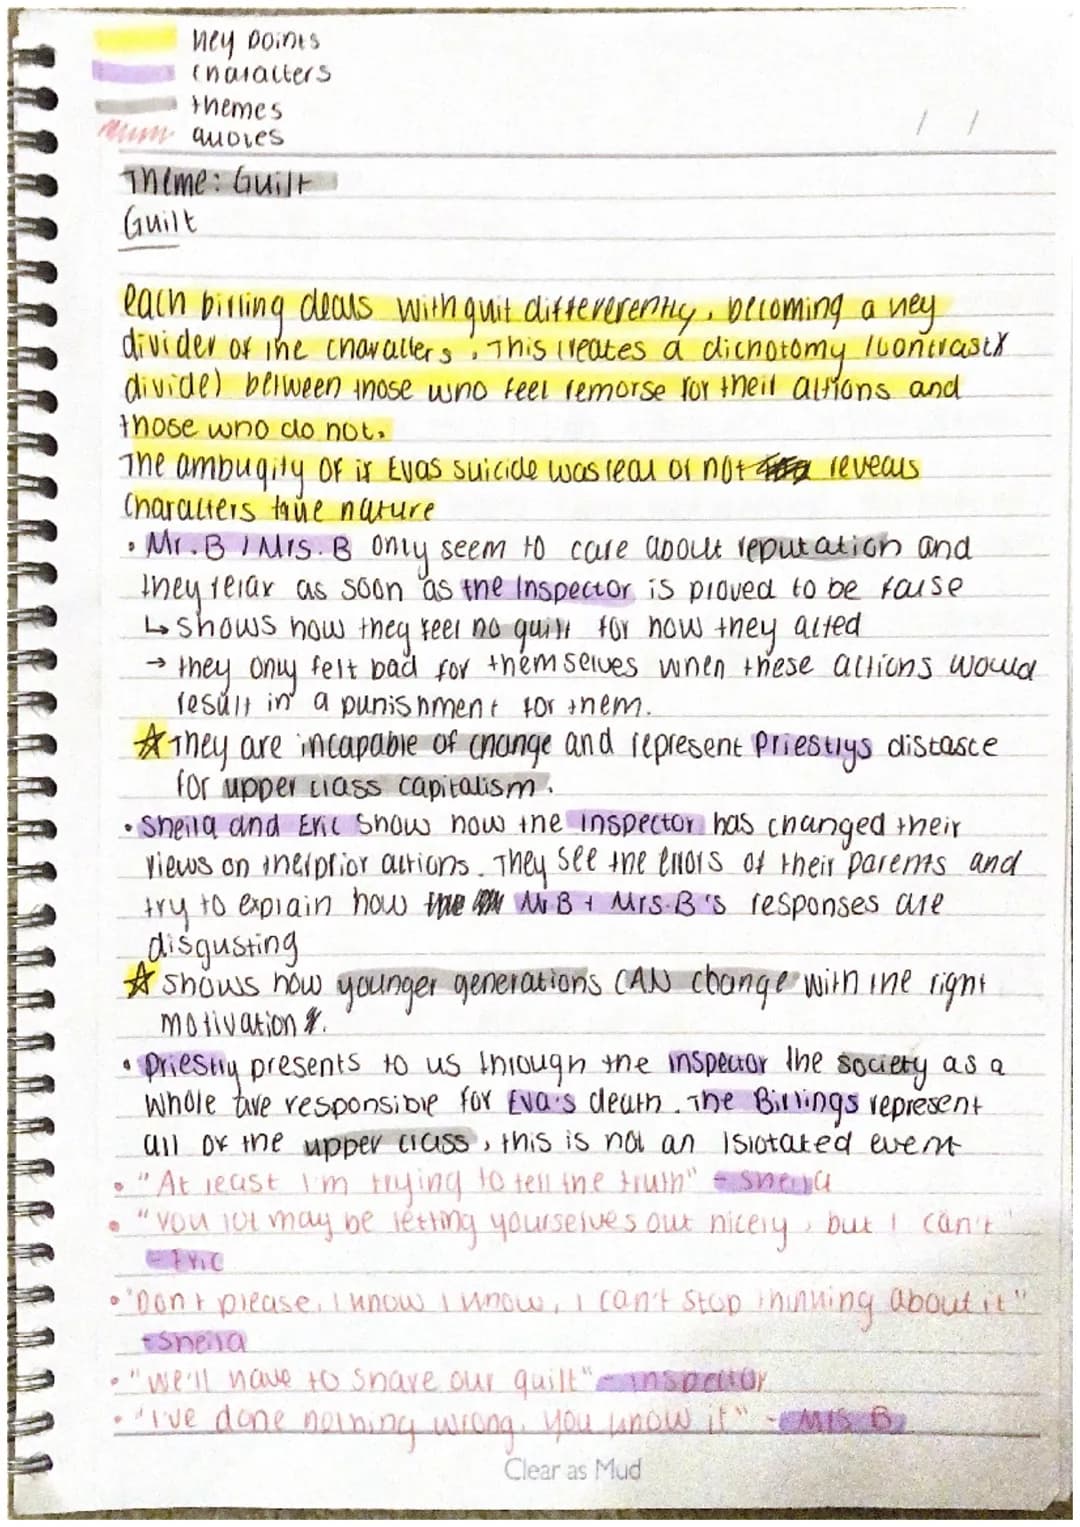 key points
characters
themes
quotes
/ /
Theme: Guilt
Guilt
each birling deals with guit differerently, becoming a key
divider of the characters. This creates a dichotomy (contrast/
divide) between those who feel remorse for their actions and
those who do not.
The ambugity of if Evas suicide was real or not reveals
characters true nature
• Mr.B / Mrs. B only seem to care about reputation and
they relax as soon as the Inspector is proved to be false
↳ shows how they feel no guilt for how they acted
→ they only felt bad for themselves when these actions would
result in a punishment for them.
☆ They are incapable of change and represent Priestlys distaste
for upper class capitalism.
• Sheila and Eric show how the inspector has changed their
views on their prior actions. They see the errors of their parents and
try to explain how Mr B + Mrs. B's responses are
disgusting
☆ shows how younger generations CAN change with the right
motivation.
• Priestly presents to us through the inspector the society as a
whole are responsible for Eva's death. The Birlings represent
all of the upper class, this is not an isolated event
• "At least I'm trying to tell the truth" - Sheila
• "You lot may be letting yourselves out nicely, but I can't"
- Eric
• "Don't please, I know I know, I can't stop thinking about it"
- Sheila
• "we'll have to share our guilt" - inspector
• "I've done nothing wrong, you know it" - Mrs B
Clear as Mud